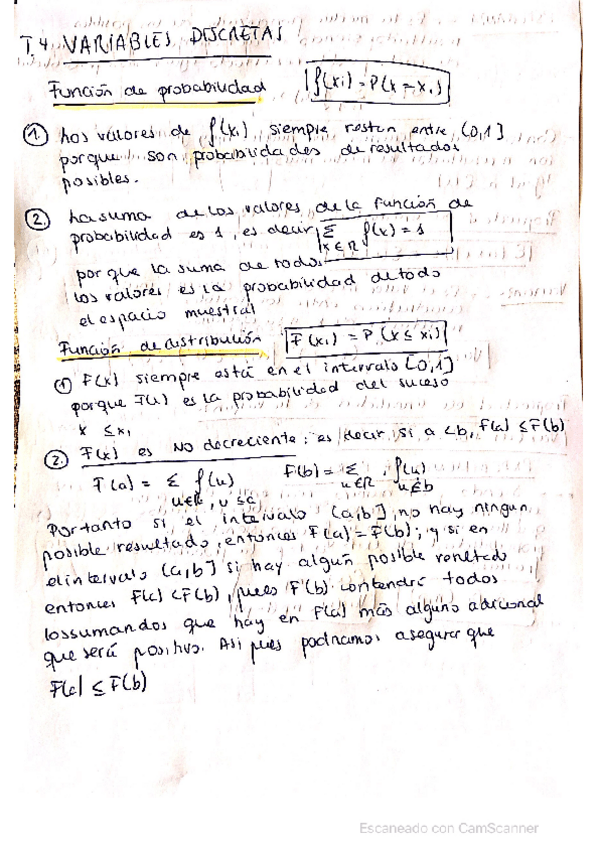 T.4 VARIABLES DISCRETAS
Función de probabilidad f(xi) = P(x = xi)
1. Los valores de f(xi) siempre restan entre [0,1]
porque son probabilidades de resultados
posibles.
2. La suma de los valores de la función de
probabilidad es 1, es decir Σ x∈R f(x) = 1
porque la suma de todos
los valores es la probabilidad de todo
el espacio muestral
Función de distribución F(xi) = P(x ≤ xi)
1 F(x) siempre está en el intervalo [0,1]
porque F(x) es la probabilidad del suceso
x ≤ xi
2. F(x) es No decreciente: es decir, si a <b, F(a) ≤ F(b)
F(a) = Σ f(u) F(b) = Σ f(u)
u∈R, u ≤a u∈R u≤b
Por tanto si el intervalo (a,b] no hay ningun
posible resultado, entonces F(a) = F(b); y si en
el intervalo (a,b] si hay algún posible resultado
entonces F(a) < F(b), pues F(b) contendrá todos
los sumandos que hay en F(a) más alguno adicional
que será positivo. Asi pues podriamos asegurar que
F(a) ≤ F(b)
Escaneado con CamScanner